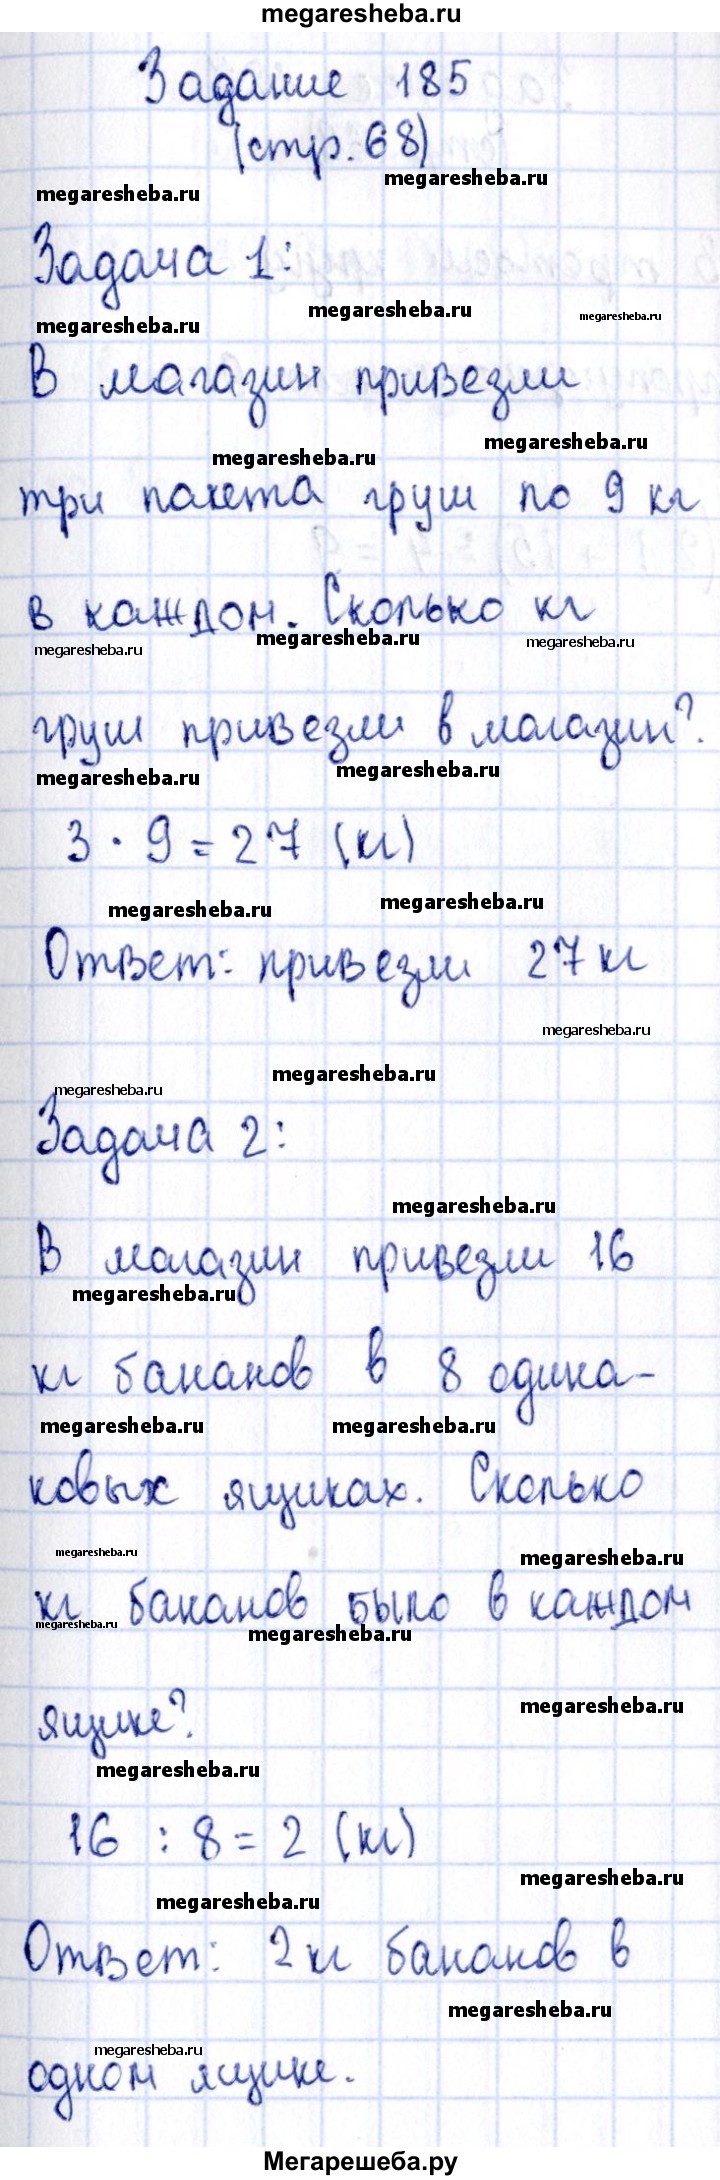 megaresheba.ru
Задание 185
(стр. 68)
megaresheba.ru megaresheba.ru
Задача 1:
megaresheba.ru megaresheba.ru megaresheba.ru
В магазин привезли
megaresheba.ru megaresheba.ru
три пакета груш по 9 кг
в каждом. Сколько кг
megaresheba.ru megaresheba.ru megaresheba.ru
груш привезли в магазин?
megaresheba.ru megaresheba.ru
3 · 9 = 27 (кг)
megaresheba.ru megaresheba.ru
Ответ: привезли 27 кг
megaresheba.ru
megaresheba.ru megaresheba.ru
Задача 2:
megaresheba.ru
В магазин привезли 16
megaresheba.ru
кг бананов в 8 одина-
megaresheba.ru megaresheba.ru
ковых ящиках. Сколько
megaresheba.ru megaresheba.ru
кг бананов было в каждом
megaresheba.ru megaresheba.ru
ящике?
megaresheba.ru
megaresheba.ru
16 : 8 = 2 (кг)
megaresheba.ru
megaresheba.ru
Ответ: 2 кг бананов в
megaresheba.ru
megaresheba.ru
одном ящике.
Мегарешеба.ру